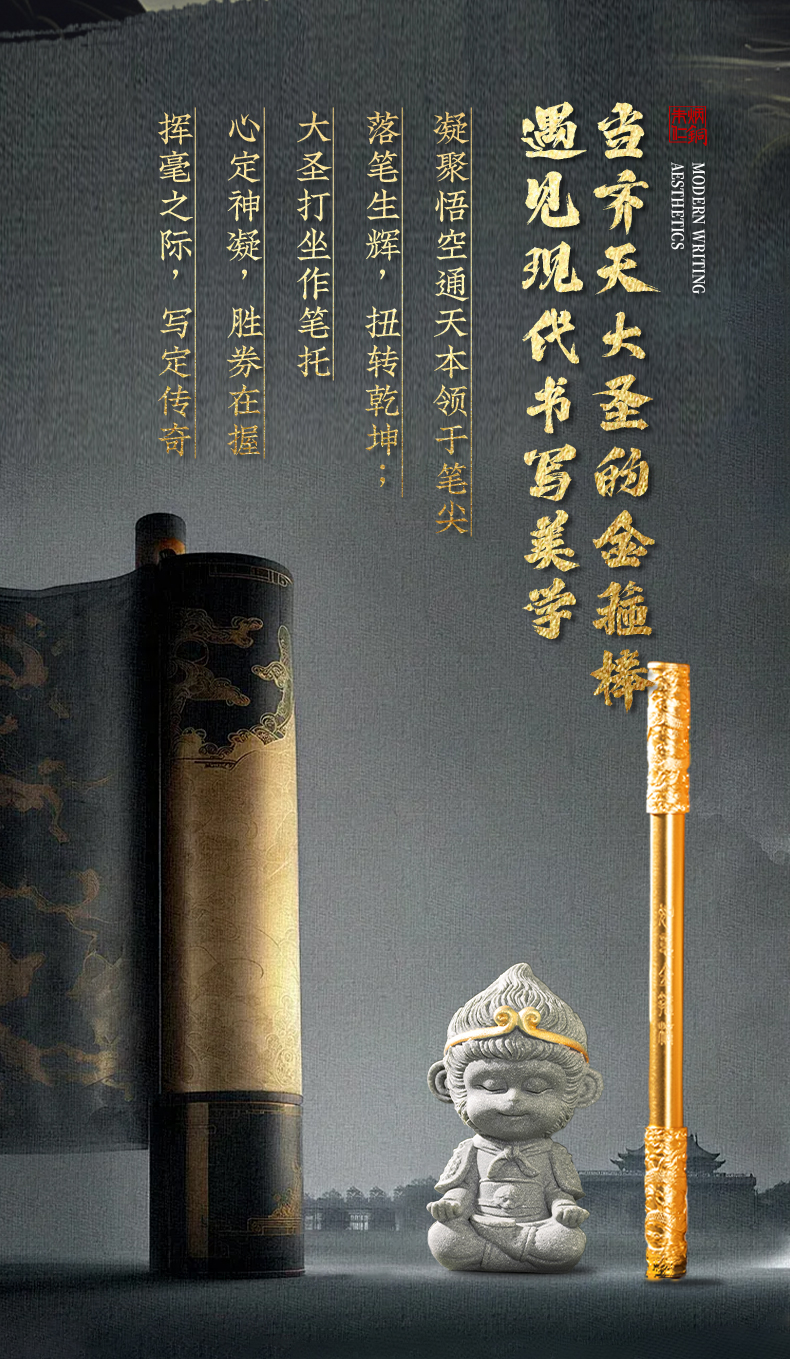 当齐天大圣的金箍棒
遇见现代书写美学
MODERN WRITING
AESTHETICS
凝聚悟空通天本领于笔尖
落笔生辉，扭转乾坤；
大圣打坐作笔托
心定神凝，胜券在握
挥毫之际，写定传奇